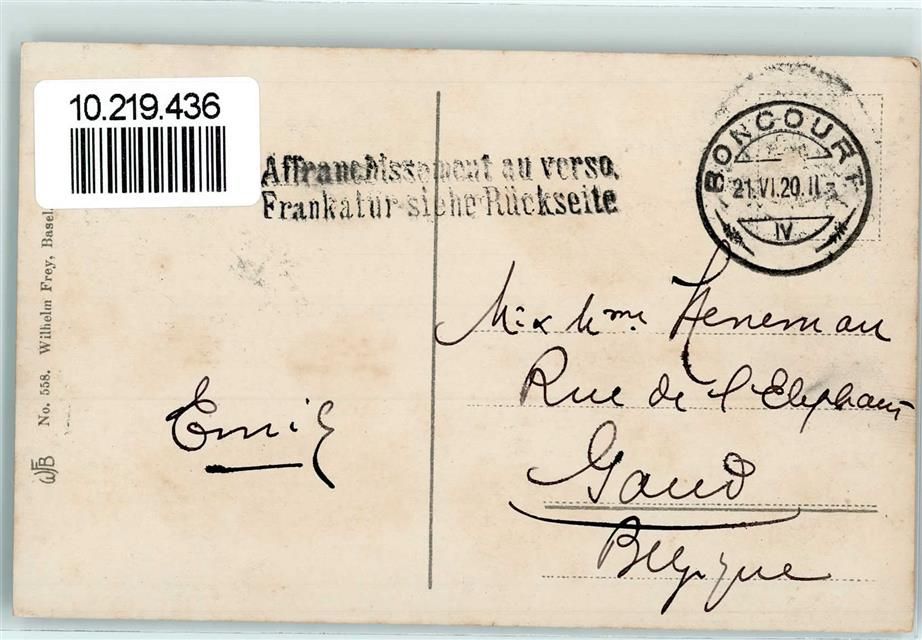 10.219.436
Affranchissement au verso.
Frankatur siehe Rückseite
BONCOURT
21.VI.20. II
IV
No. 558. Wilhelm Frey, Basel.
WFB
Mr & Mme. Heneman
Rue de l'Elephant
Gand
Belgique
Emil